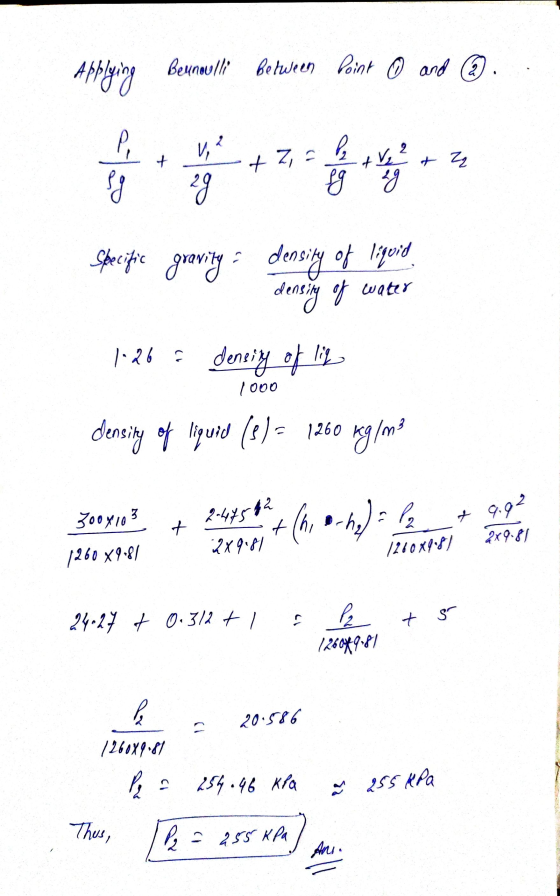 Applying Bernoulli Between Point ① and ②.
P₁/ρg + V₁²/2g + Z₁ = P₂/ρg + V₂²/2g + Z₂
Specific gravity = density of liquid / density of water
1.26 = density of liq / 1000
density of liquid (ρ) = 1260 kg/m³
300×10³/1260×9.81 + 2.475²/2×9.81 + (h₁ - h₂) = P₂/1260×9.81 + 9.9²/2×9.81
24.27 + 0.312 + 1 = P₂/1260×9.81 + 5
P₂/1260×9.81 = 20.586
P₂ = 254.46 KPa ≈ 255 KPa
Thus, P₂ = 255 KPa Ans.